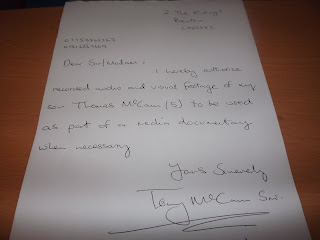 2 The
Dear Sir/Madam:
I hereby authorise
recorded audio and visual footage of my
son Thomas McCann (5) to be used
as part of a media documentary
when necessary
Yours Sincerely
Tony McCann Snr.